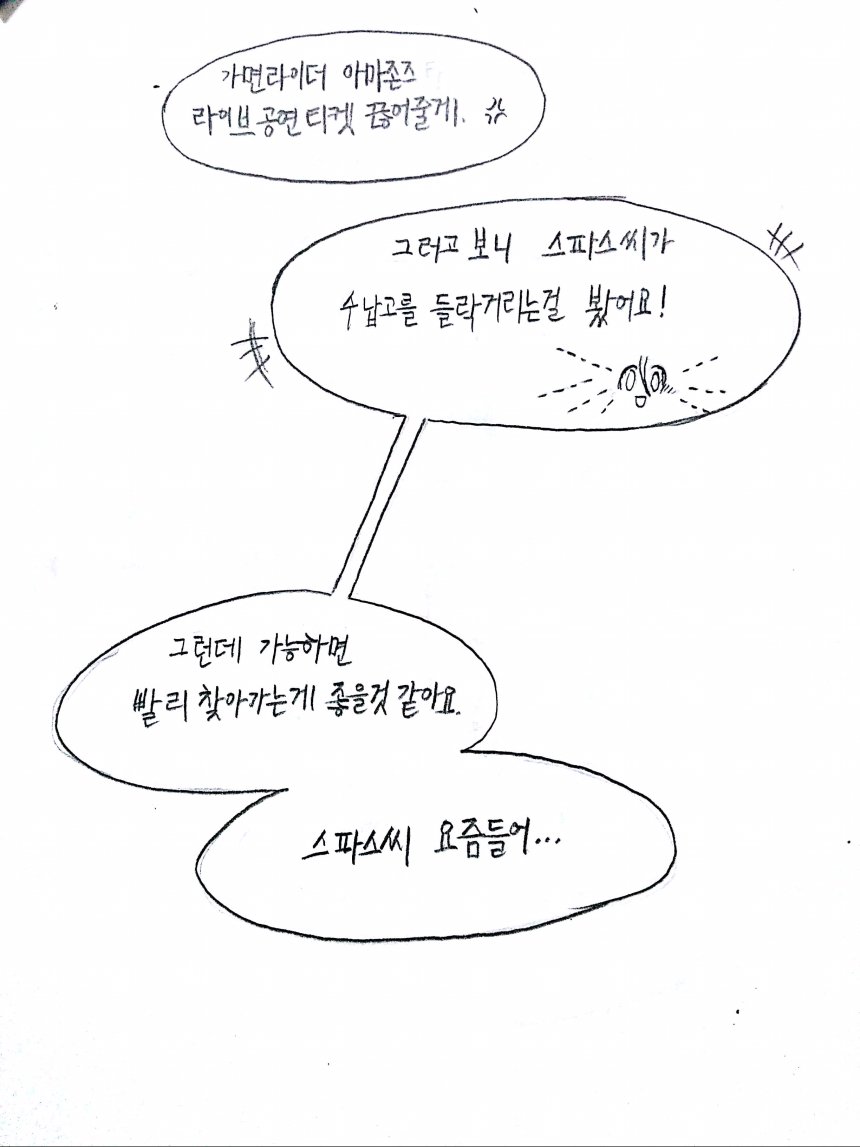 가면라이더 아마존즈
라이브공연 티켓 끊어줄게.
그러고 보니 스파스씨가
수납고를 들락거리는걸 봤어요!
그런데 가능하면
빨리 찾아가는게 좋을것 같아요.
스파스씨 요즘들어...